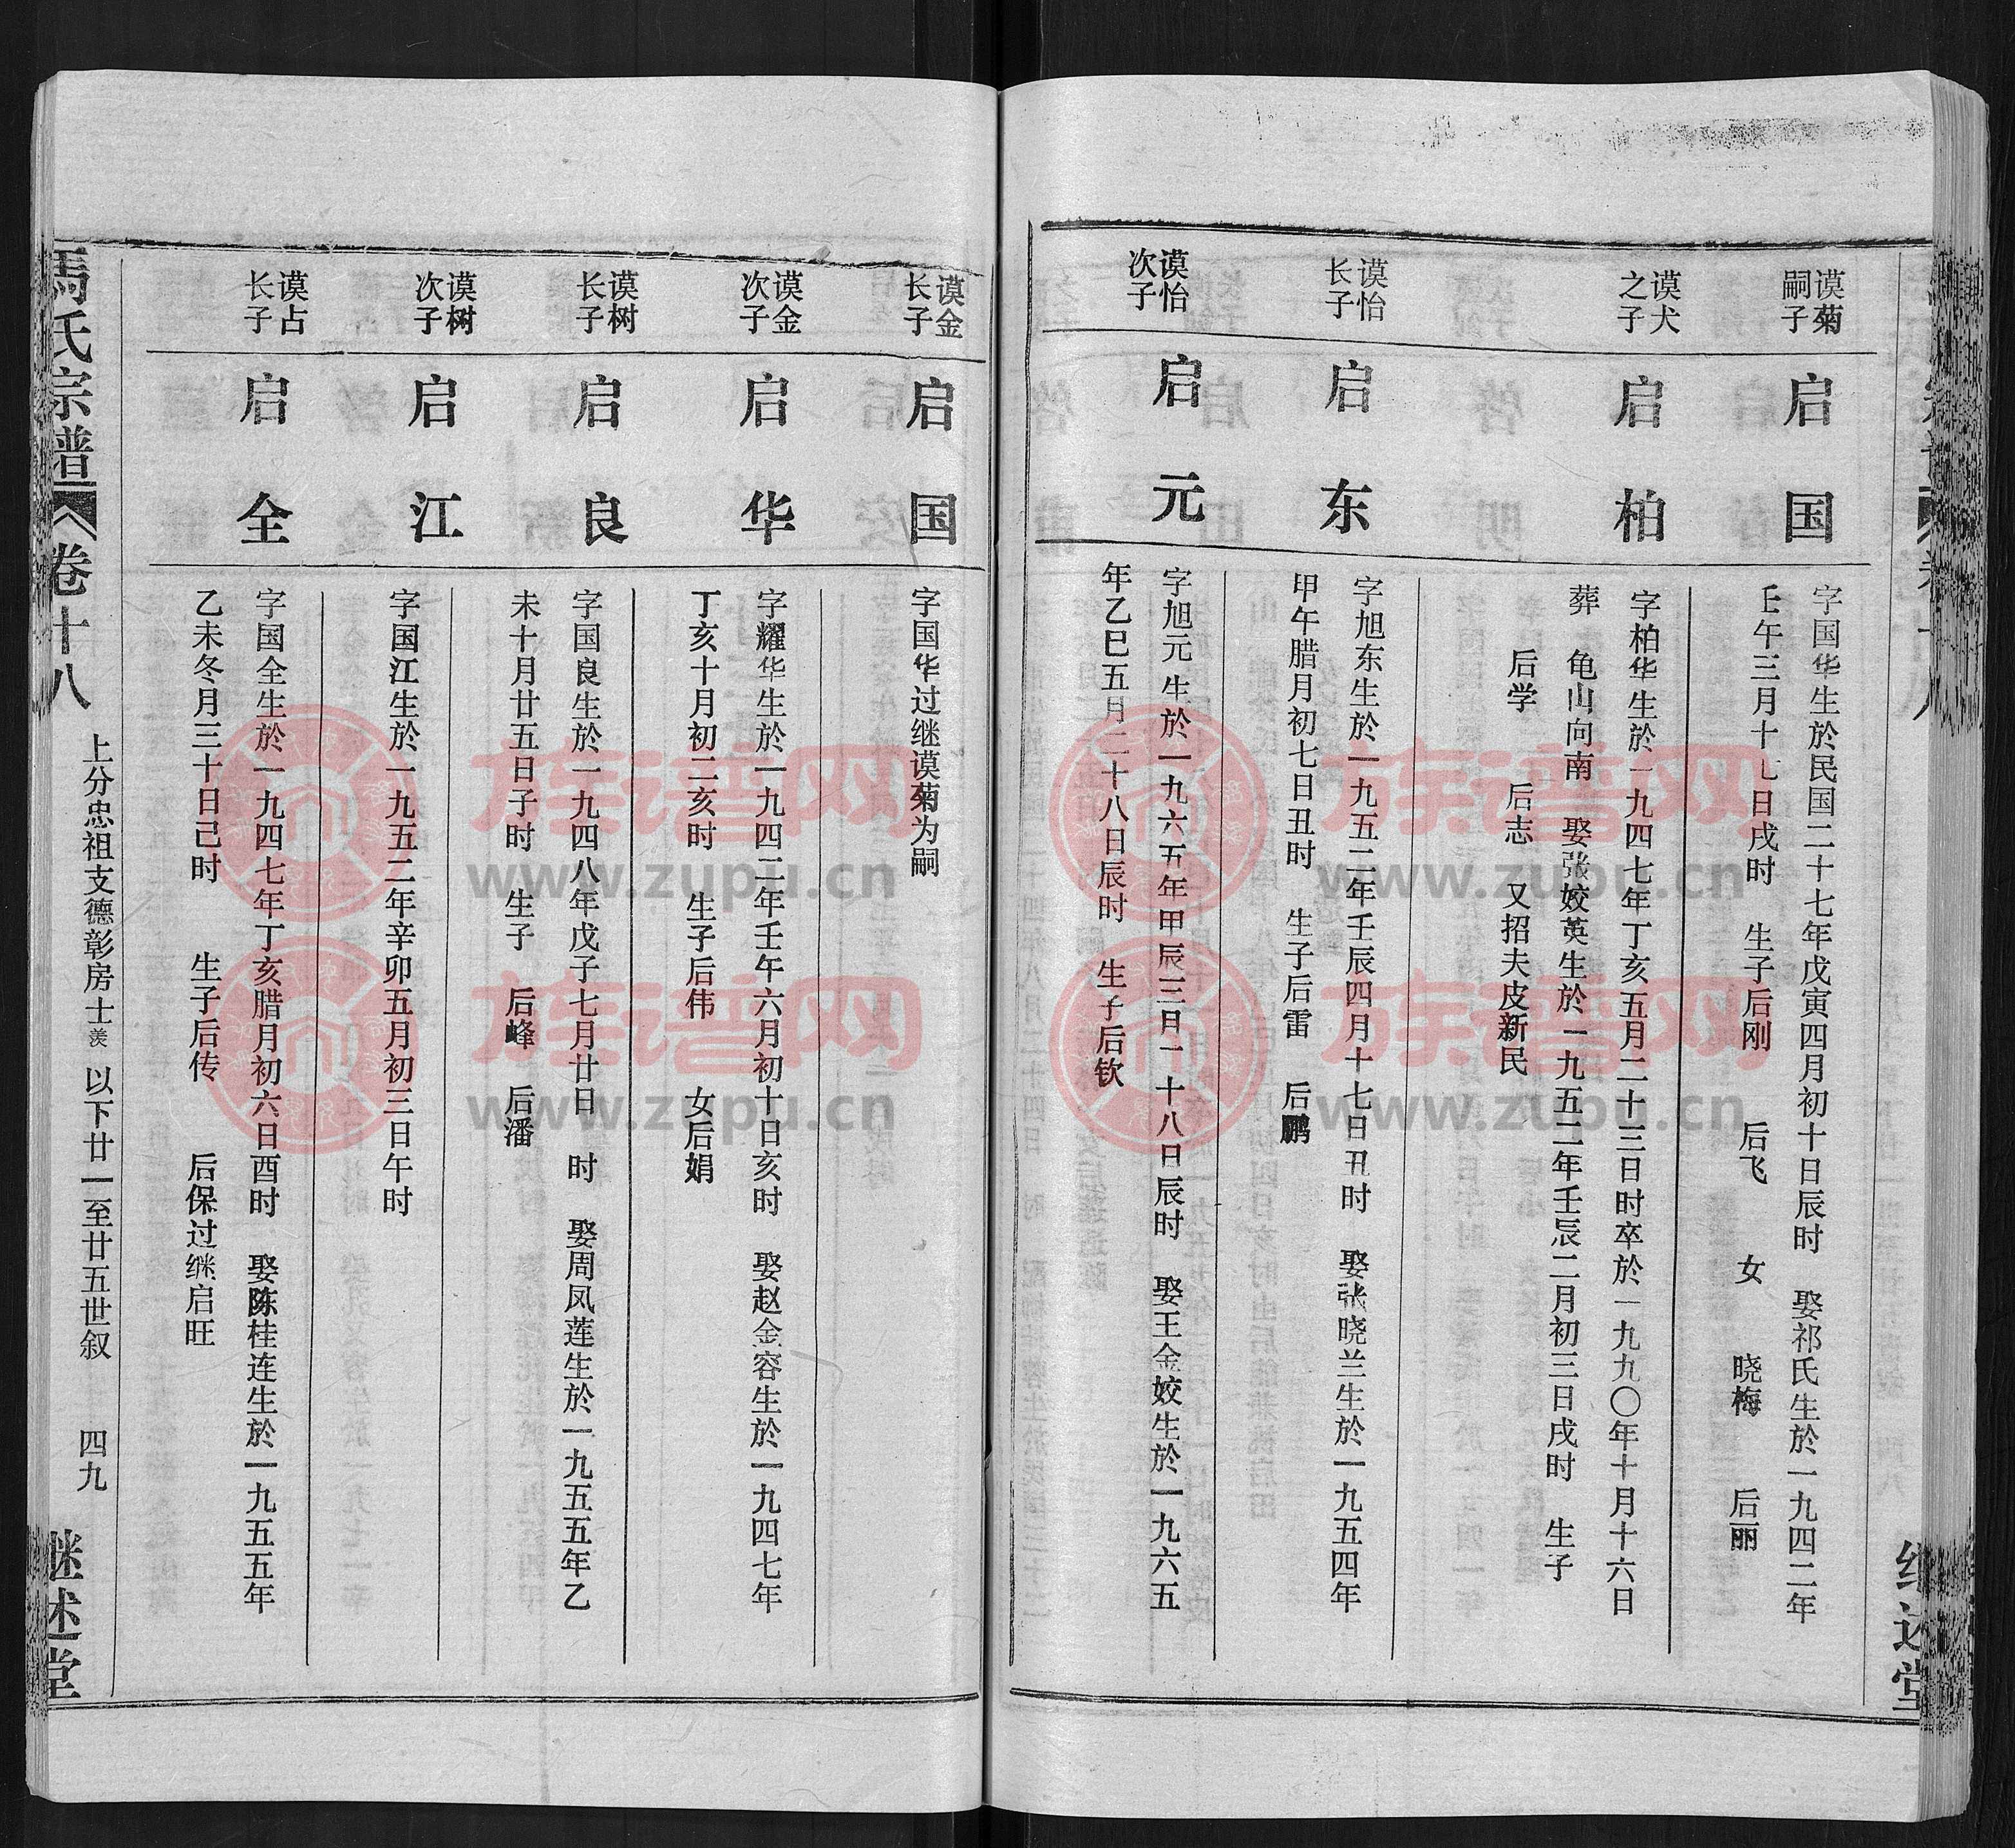 谟菊
嗣子
启国
字国华生於民国二十七年戊寅四月初十日辰时 娶祁氏生於一九四二年
壬午三月十七日戌时 生子后刚 后飞 女 晓梅 后丽
谟犬
之子
启柏
字柏华生於一九四七年丁亥五月二十三日时卒於一九九〇年十月十六日
葬 龟山向南 娶张姣英生於一九五二年壬辰二月初三日戌时 生子
后学 后志 又招夫皮新民
谟怡
长子
启东
字旭东生於一九五二年壬辰四月十七日丑时 娶张晓兰生於一九五四年
甲午腊月初七日丑时 生子后雷 后鹏
谟怡
次子
启元
字旭元生於一九六五年甲辰三月二十八日辰时 娶王金姣生於一九六五
年乙巳五月二十八日辰时 生子后钦
继述堂
谟金
长子
启国
字国华过继谟菊为嗣
谟金
次子
启华
字耀华生於一九四二年壬午六月初十日亥时 娶赵金容生於一九四七年
丁亥十月初二亥时 生子后伟 女后娟
谟树
长子
启良
字国良生於一九四八年戊子七月廿日 时 娶周凤莲生於一九五五年乙
未十月廿五日子时 生子 后峰 后潘
谟树
次子
启江
字国江生於一九五二年辛卯五月初三日午时
谟占
长子
启全
字国全生於一九四七年丁亥腊月初六日酉时 娶陈桂连生於一九五五年
乙未冬月三十日己时 生子后传 后保过继启旺
上分忠祖支德彰房士羡 以下廿一至廿五世叙 四九
馬氏宗谱 卷十八 继述堂
族谱网
www.zupu.cn
族谱网
www.zupu.cn
族谱网
www.zupu.cn
族谱网
www.zupu.cn